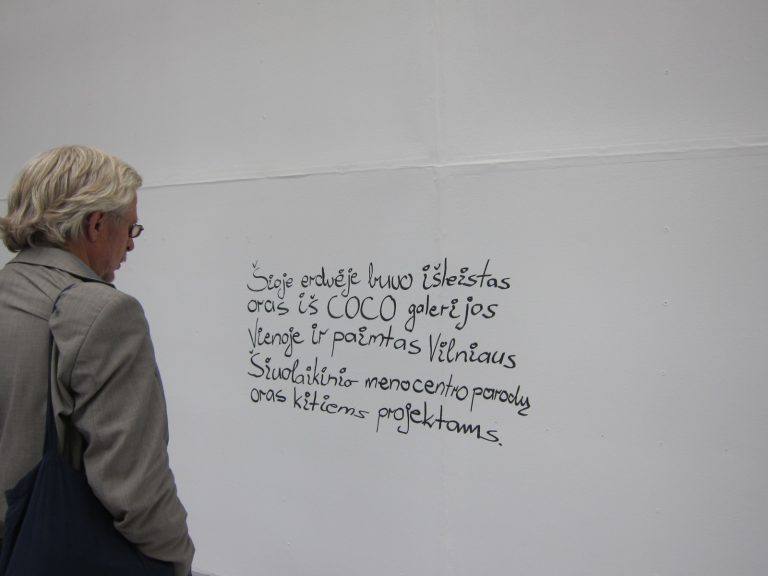 Šioje erdvėje buvo išleistas
oras iš COCO galerijos
Vienoje ir paimtas Vilniaus
Šiuolaikinio meno centro parodų
oras kitiems projektams.